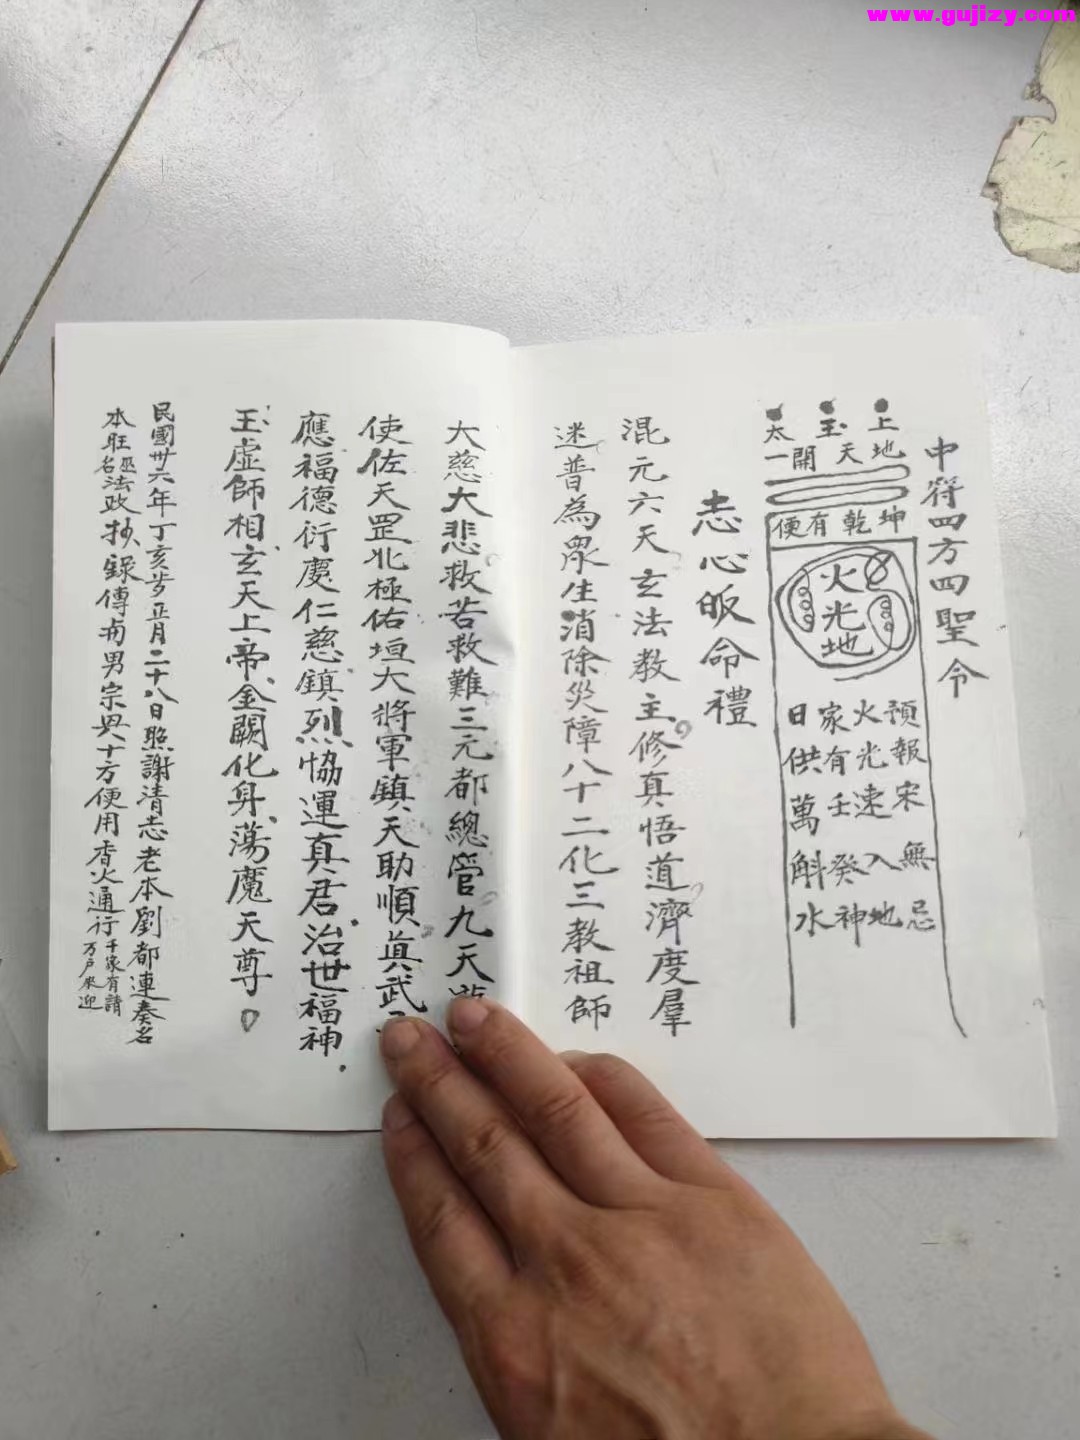 www.gujizy.com
中符四方四聖令
上玉太
地天開一
坤乾有便
火光地
預報宋無忌
火光速入地
家有壬癸神
日供萬斛水
志心皈命禮
混元六天玄法教主修真悟道濟度羣
迷普為眾生消除災障八十二化三教祖師
大慈大悲救苦救難三元都總管九天
使佐天罡北極佑垣大將軍鎮天助順真武
應福德衍慶仁慈鎮烈協運真君治世福神
玉虛師相玄天上帝金闕化身蕩魔天尊
民國卅六年丁亥岁正月二十八日照謝清志老本劉都連奏名
本旺巫名法政抄錄傳与男宗興十方便用香火通行千家有請万户來迎